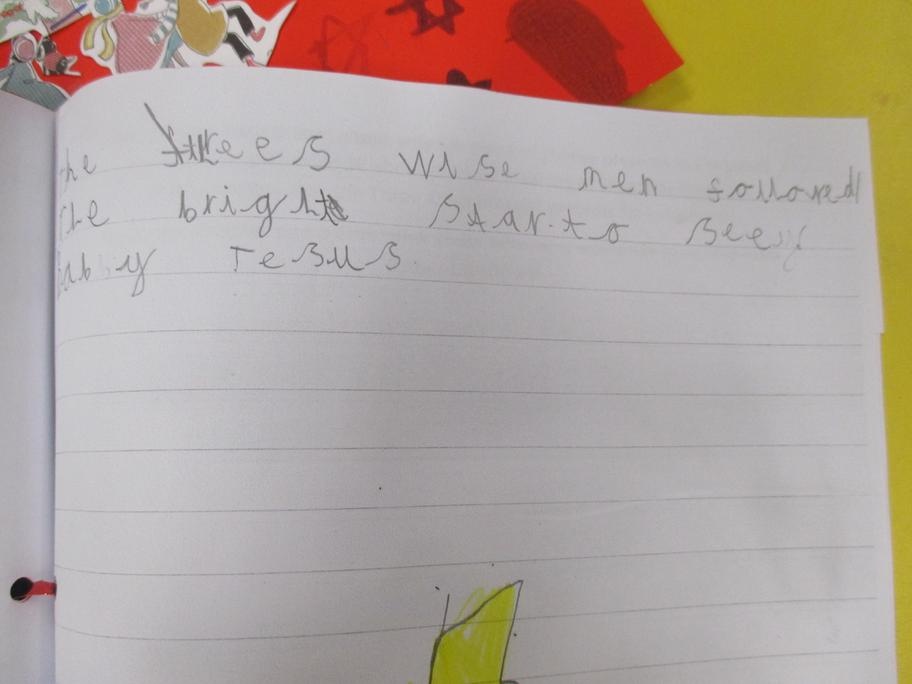 the threes wise men followed
the bright star.to see
baby Jesus.